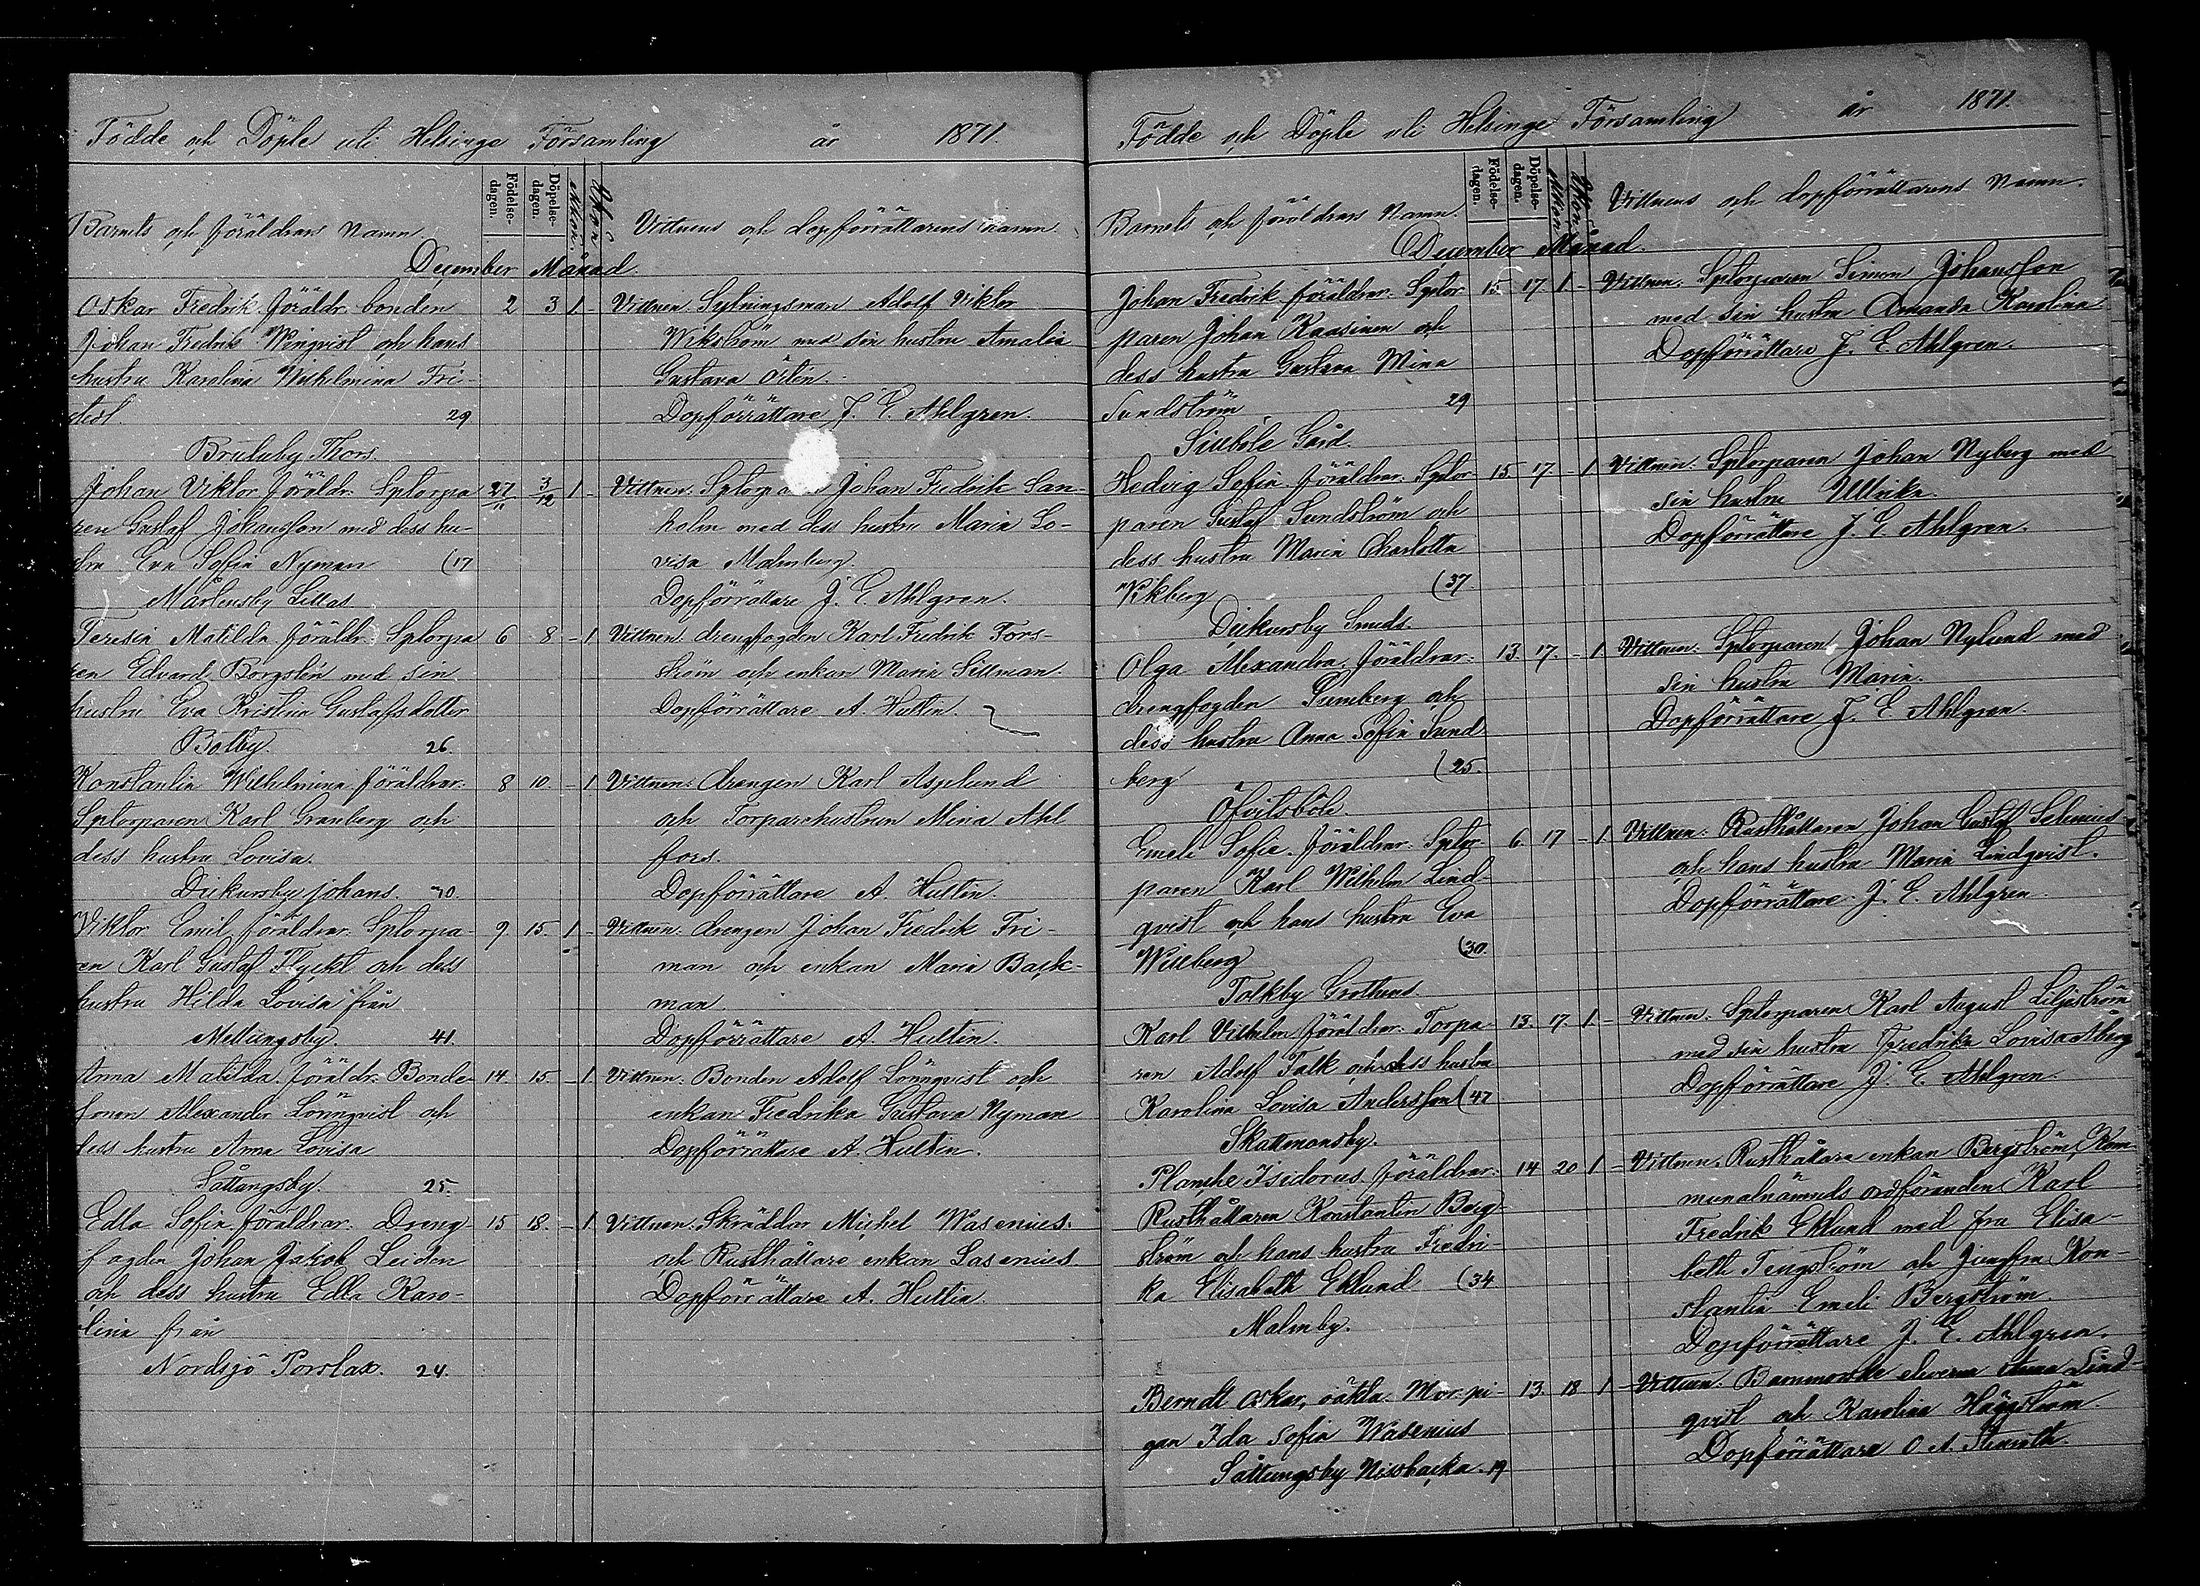 Födde och Döpte uti Helsinge Församling år 1871.
Barnets och föräldrars Namn.
Födelse-dagen.
Döpelse-dagen.
Mkön.
Qkön.
Vittnens och dopförrättarens namn.
December Månad.
Oskar Fredrik. föräldr. bonden 2 3 1 -
Johan Fredrik Winqvist och hans
hustru Karolina Wilhelmina Fri-
29
Vittnen. Sytningsman Adolf Viktor
Wikström med sin hustru Amalia
Gustava
Dopförrättare J. E. Ahlgren.
Thors.
Johan Viktor. föräldr. Sptorpa 27/11 3/12 1 -
ren Gustaf Johansson med dess hu-
stru Eva Sofia Nyman (17
Mårtensby Littas
Vittnen. Johan Fredrik San-
holm med dess hustru Maria Lo-
visa Malmberg.
Dopförrättare J. E. Ahlgren.
Teresia Matilda. föräldr. Sptorpa 6 8 - 1
ren Edvard Borgstén med sin
hustru Eva Kristina Gustafsdotter
Bolby. 26.
Vittnen. drengfogden Karl Fredrik Fors-
ström och enkan Maria Sittman.
Dopförrättare A. Hultin.
Konstantia Wilhelmina. föräldrar: 8 10. - 1
Sptorparen Karl Granberg och
dess hustru Lovisa.
Dickursby Johans. 40.
Vittnen: drengen Karl Asplund
och Torparehustrun Mina Ahl
fors.
Dopförrättare A. Hultin.
Viktor Emil. föräldrar. Sptorpa- 9 15. 1 -
ren Karl Gustaf Flyckt och dess
hustru Hilda Lovisa från
Mellungsby. 41.
Vittnen: drengen Johan Fredrik Fri-
man och enkan Maria Back-
man.
Dopförrättare A. Hultin.
Anna Matilda. föräldr. Bonde- 14. 15. - 1
sonen Alexander Lönnqvist och
dess hustru Anna Lovisa
Sattangsby. 25.
Vittnen: Bonden Adolf Lönnqvist och
enkan Fredrika Gustava Nyman
Dopförrättare A. Hultin.
Edla Sofia. föräldrar. Dreng 15 18. - 1
fogden Johan Jakob Leiden
och dess hustru Edla Karo-
lina från
Nordsjö Porslax. 24.
Vittnen. Skräddar Michel Wasenius.
och Rusthållare enkan Sasenius
Dopförrättare A. Hultin.
Födde och Döpte uti Helsinge Församling år 1871.
Barnets och föräldrars Namn.
Födelse-dagen.
Döpelse-dagen.
Mkön.
Qkön.
Vittnens och dopförrättarens Namn.
December Månad.
Johan Fredrik. föräldrar. Sptor 15 17. 1 -
paren Johan Kaasinen och
dess hustru Gustava Mina
Sundström 29
Sixböle Gård.
Vittnen. Sptorparen Simon Johansson
med sin hustru Amanda Karolina
Dopförrättare J. E. Ahlgren.
Hedvig Sofia. föräldrar. Sptor- 15. 17. - 1
paren Gustaf Sundström och
dess hustru Maria Charlotta
Vikberg (37.
Dickursby Smeds.
Vittnen: Sptorparen Johan Nyberg med
sin hustru Ullrika.
Dopförrättare J. E. Ahlgren.
Olga Alexandra. föräldrar: 13. 17. - 1
drengfogden och
dess hustru Anna Sofia Sund
berg (25.
Öfvitsböle.
Vittnen: Sptorparen Johan Nylund med
sin hustru Maria.
Dopförrättare J. E. Ahlgren.
Emeli Sofia. föräldrar. Sptor 6. 17 - 1
paren Karl Wilhelm Lind-
qvist och hans hustru Eva
Wiceberg (30.
Tolkby Grothens
Vittnen: Rusthållaren Johan Gustaf Selenius
och hans hustru Maria Lindqvist.
Dopförrättare J. E. Ahlgren.
Karl Vilhelm. föräldrar. Torpa- 13. 17. 1 -
ren Adolf Falk och dess hustru
Karolina Lovisa Andersson (47
Skattmansby.
Vittnen. Sptorparen Karl August Liljeström
med sin hustru Fredrika Lovisa Åberg
Dopförrättare J. E. Ahlgren.
Planshe Isidorus. föräldrar. 14 20 1 -
Rusthållaren Konstantin Berg-
ström och hans hustru Fredri-
ka Elisabeth Eklund (34.
Malmby.
Vittnen: Rusthållare enkan Bergström, Kom-
munalnämnds ordföranden Karl
Fredrik Eklund med fru Elisa-
beth Tengström och Jungfru Kon-
stantia Emeli Bergström.
Dopförrättare J. E. Ahlgren.
Berndt Oskar, oäkta. Mor. pi- 13. 18 1 -
gan Ida Sofia Wasenius
Sattungsby Nissbacka. 19
Vittnen: Barnmorske eleverna Anna Lind-
qvist och Karolina Häggström
Dopförrättare O. A. Stenroth.